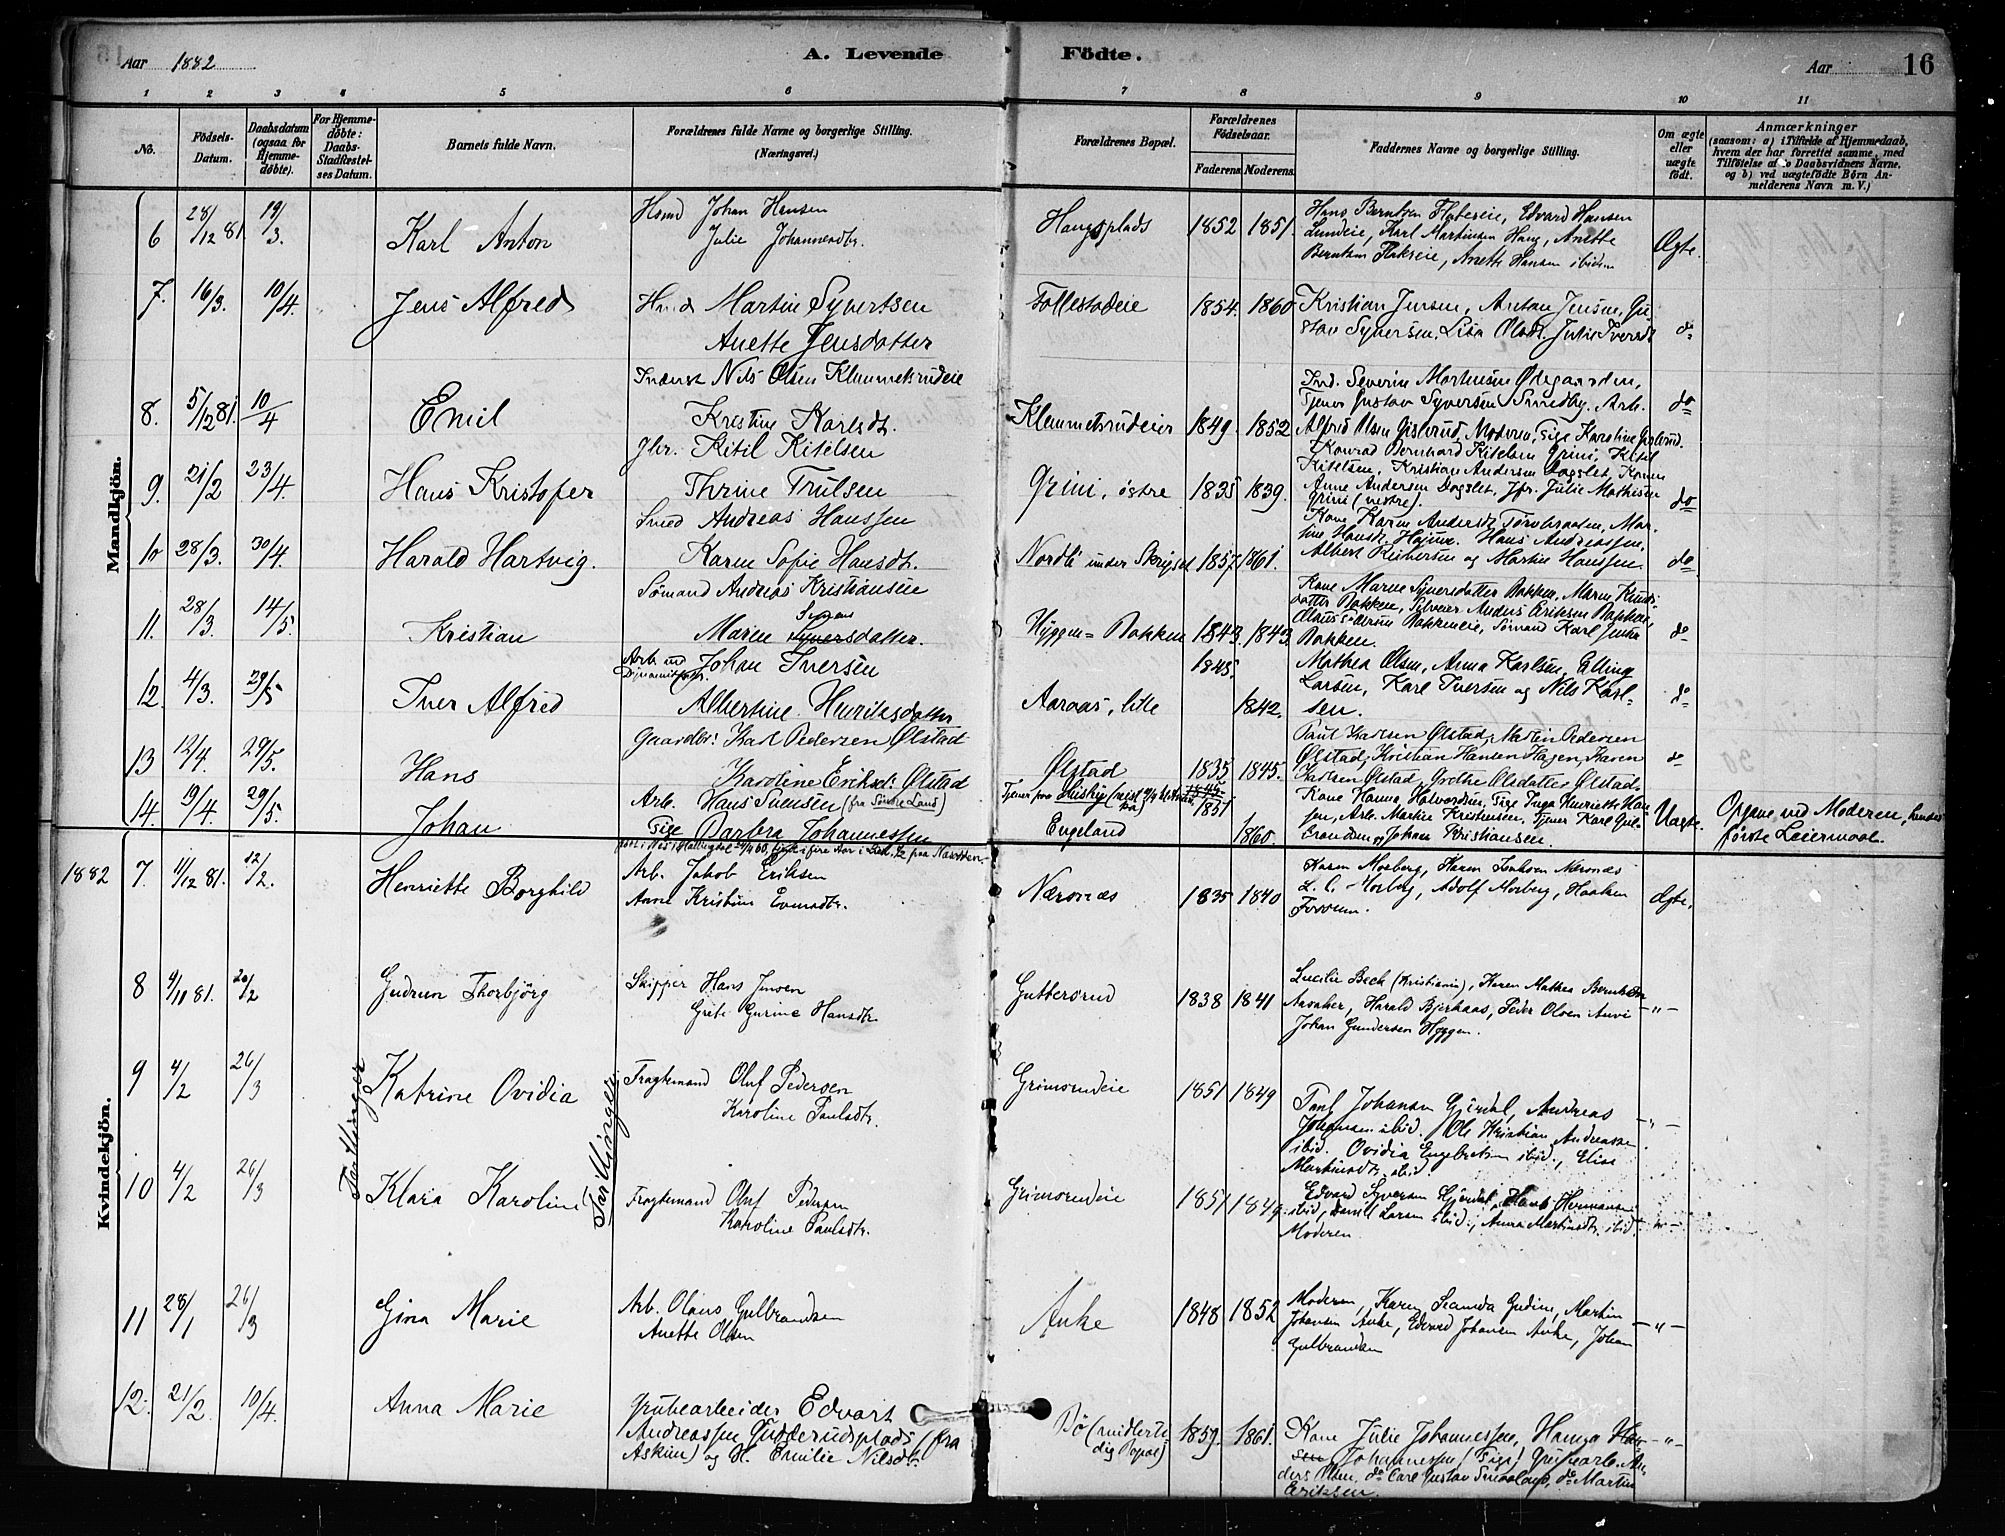 Aar 1882
A. Levende Födte.
Aar 16
1 2 3 4 5 6 7 8 9 10 11
No.
Födsels-Datum.
Daabsdatum (ogsaa for Hjemme-döbte).
For Hjemme-döbte: Daabs-Stadfæstel-ses Datum.
Barnets fulde Navn.
Forældrenes fulde Navne og borgerlige Stilling. (Næringsvei.)
Forældrenes Bopæl.
Forældrenes Födselsaar.
Faderens. Moderens.
Faddernes Navne og borgerlige Stilling.
Om ægte eller uægte födt.
Anmærkninger
(saasom: a) i Tilfælde af Hjemmedaab, hvem der har forrettet samme, med Tilföielse af to Daabsvidners Navne, og b) ved uægtefödte Börn Anmelderens Navn m. V.)
Mandkjön.
6 28/12 81. 19/3. Karl Anton
Johan Hansen
Julie Johannesdtr.
Haugsplads 1852 1851.
Hans Berntsen Flakseie, Edvard Hansen
Lundeie, Karl Martinsen Haug, Anette
Berntsen Flakseie, Anette Hansen ibidem
Ægte.
7. 16/3. 10/4. Jens Alfred
Martin Syvertsen
Anette Jensdatter
Follestadeie 1854. 1860
Kristian Jensen, Anton Jensen, Gu-
stav Syversen, Lisa Olsdt. Julie Iversdt
do
8. 5/12 81. 10/4 Emil
Inderst Nils Olsen Klemmetsrudeie
Kristine Karlsdt.
Klemmetsrudeier 1849. 1852
Ind. Severin Martinsen Ødegaarden,
Tjener Gustav Syversen Smedby. Arb.
Alfred Olsen Gislerud, Moderen, Pige Karoline Gislerud.
do
9. 21/2 23/4. Hans Kristofer
Gbr. Kitil Kitelsen
Thrine Trulsen
Grini, østre 1835 1839.
Konrad Bernhard Kitelsen Grini, Kitil
Kitelsen, Kristian Andersen Dagslet, Konen
Anne Andersen Dagslet, Jfr. Julie Mathisen
Grini (vestre).
do
10 28/3. 30/4. Harald Hartvig.
Smed Andreas Hanssen
Karen Sofie Hansdt.
Nordli under Skripset 1857. 1861.
Kone Karen Andersdt. Mar-
tine Hansdt. Hans Andreassen,
Albert og Martin Hanssen.
do
11. 28/3. 14/5. Kristian
Sømand Andreas Kristiansen
Maren Syversdatter.
Hyggen = Bakken 1843. 1843.
Kone Maren Syversdatter Bakken, Maren Knuds-
datter Bakken, Selveier Anders Eriksen Bakken,
Sømand Karl
Bakken.
do
12. 4/3. 29/5 Iver Alfred
Arb. ved Dynamitfabr. Johan Iversen
Albertine Henriksdatter
Aaraas, lille 1845. 1842.
Mathea Olsen, Anna Karlsen, Elling
Larsen, Karl Iversen og Nils Karl-
sen.
do
13 12/4. 29/5. Hans
Gaardbr: Karl Pedersen Ølstad
Karoline Eriksd: Ølstad
Ølstad 1835 1845.
Paul Karlsen Ølstad, Martin Pedersen
Ølstad, Kristian Hansen Hagen, Karen
Karlsen Ølstad, Grethe Olsdatter Ølstad
do
14. 19/4. 29/5. Johan
Arb. Hans Svensen (fra Søndre Land)
Pige Barbra Johannessen
Tjener paa Huseby
Engeland 1851 1860.
Kone Hanna Halvordsen, Pige Inga Henriette Han-
sen, Arb. Martin Kristensen, Tjener Karl Gul-
brandsen, Johan Kristiansen.
Uægte.
Opgave ved Moderen, hendes
første Leiermaal.
Kvindekjön.
1882 7. 11/12 81. 12/2. Henriette Borghild
Arb. Jakob Eriksen
Anne Kristine Evensdtr.
Nærsnæs 1835 1840
Karen Morberg, Karen Nærsnæs
L. C. Morberg, Adolf Morberg, Haaken
Fossum.
Ægte.
8 9/11 81. 20/2 Gudrun Thorbjörg
Skipper Hans Jensen
Grete Gurine Hansdtr.
Guttersrud 1838 1841
Lucilie Beck (Kristiania), Karen Mathea Berntsen
Aaraker, Harald Bjerkaas, Peder Olsen Auvi
Johan Gundersen Hyggen.
-"-
9 4/2 26/3 Katrine Ovidia
Tvillinger
Fragtemand Oluf Pedersen
Karoline Paulsdtr.
Grimsrudeie 1851 1849
Paul Johansen Gjerdal, Andreas
Johansen ibid. Ole Kristian Andreasse
ibid. Ovidia Engebretsen ibid., Elise
Martinsdtr. ibid.
-"-
10 4/2 26/3 Klara Karoline
Tvillinger
Fragtemand Oluf Pedersen
Karoline Paulsdtr.
Grimsrudeie 1851 1849.
Edvard Syversen Gjerdal, Hans Hermansen
ibid, Larsen ibid., Anna Martinsdtr. ibid.
Moderen
-"-
11 28/1 26/3 Gina Marie
Arb. Olaus Gulbrandsen
Anette Olsen
Auke 1848 1852
Moderen, Karen Gudine, Martin
Johansen Auke, Edvard Johansen Auke, Johan
Gulbrandsen
-"-
12. 21/2. 10/4. Anna Marie
Grubearbeider Edvart
Andreassen Gudderudsplads (fra
Askim) og H. Emilie Nilsdt.
Bø (midlerti-
dig Bopæl) 1859. 1861.
Kone Julie Johannessen, Hanna Han-
sen Johannessen (Pige) Grubearb. An-
ders Olsen, do Carl Gustav do Martin
Eriksen.
-"-